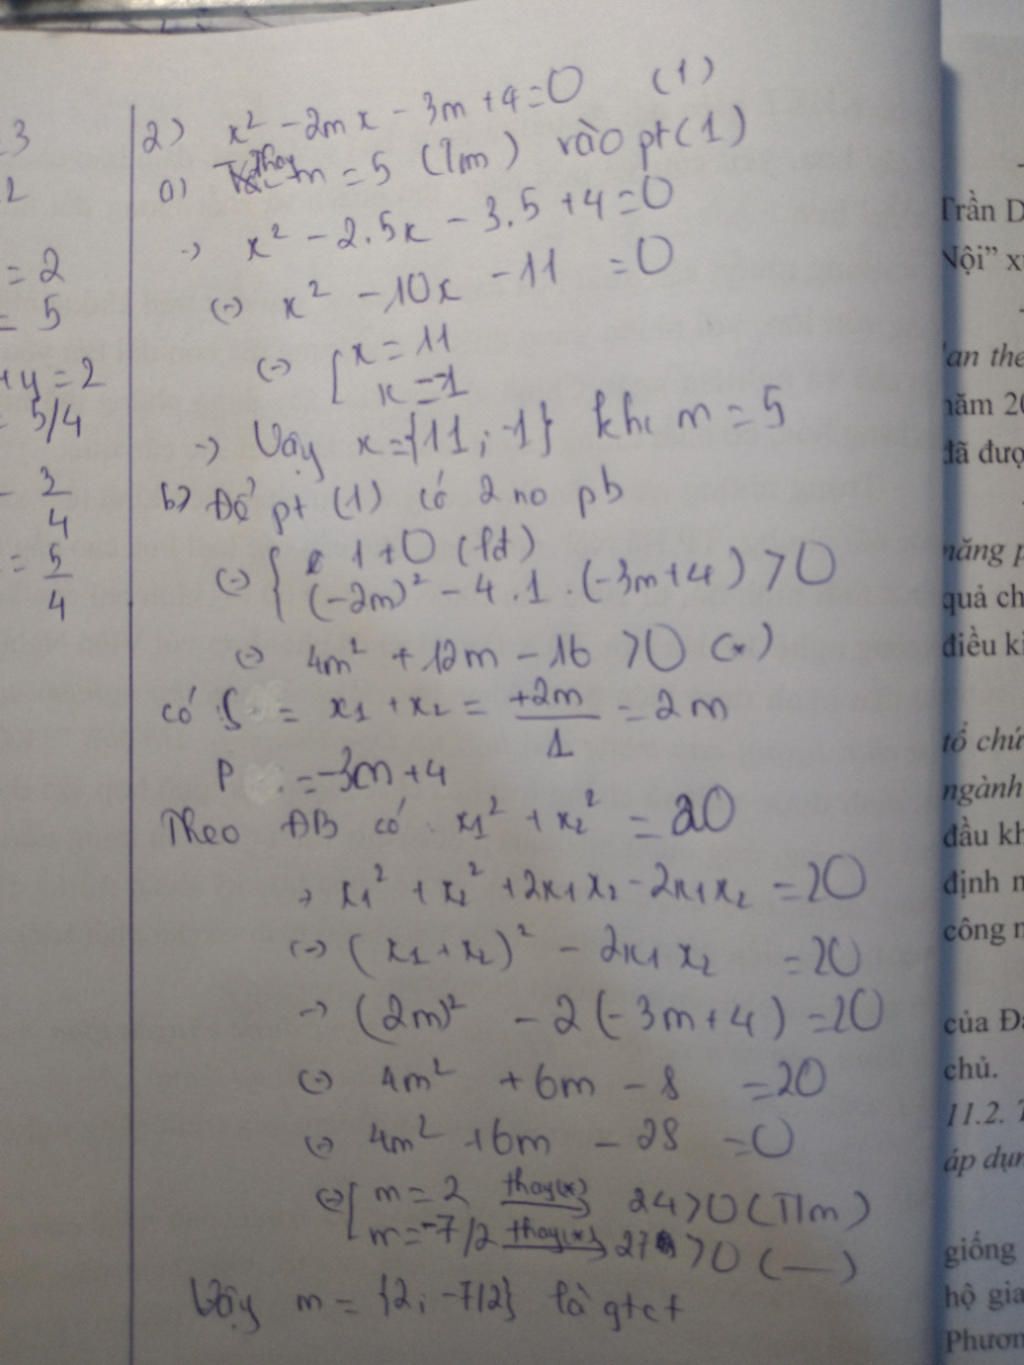 3
2
= 2
= 5
+y = 2
= 5/4
3
4
= 5
4
2) x² - 2mx - 3m + 4 = 0 (1)
a) Thay m = 5 (Tm) vào pt (1)
-> x² - 2.5x - 3.5 + 4 = 0
(-) x² - 10x - 11 = 0
(-) [ x = 11
x = -1
-> Vậy x = {11; -1} khi m = 5
b) Để pt (1) có 2 no pb
(-) { 1 ≠ 0 (lđ)
(-2m)² - 4.1.(-3m+4) > 0
(-) 4m² + 12m - 16 > 0 (*)
có S = x₁ + x₂ = +2m/1 = 2m
P = -3m + 4
Theo ĐB có x₁² + x₂² = 20
-> x₁² + x₂² + 2x₁x₂ - 2x₁x₂ = 20
(-) (x₁ + x₂)² - 2x₁x₂ = 20
-> (2m)² - 2(-3m+4) = 20
(-) 4m² + 6m - 8 = 20
(-) 4m² + 6m - 28 = 0
(-) [ m = 2 thay(*) 24 > 0 (Tm)
m = -7/2 thay(*) 27 > 0 (—)
Vậy m = {2; -7/2} là gtct
Trần D
Nội” x
an the
năm 20
đã đượ
năng p
quả ch
điều ki
tổ chứ
ngành
đầu kh
định n
công n
của Đ
chủ.
11.2. T
áp dụn
giống
hộ gia
Phươn